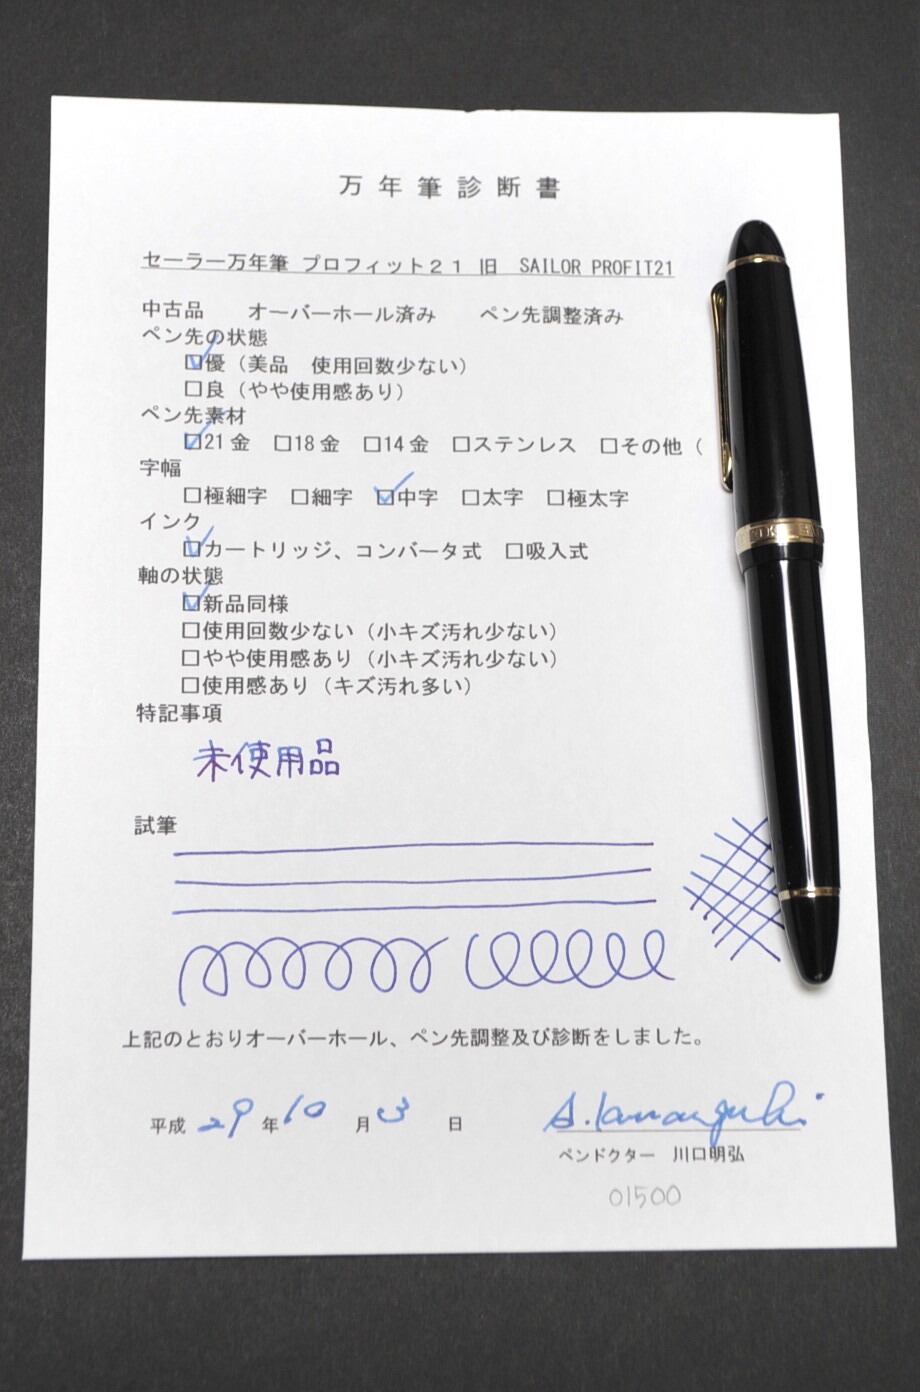 万年筆診断書
セーラー万年筆 プロフィット２１ 旧 SAILOR PROFIT21
中古品 オーバーホール済み ペン先調整済み
ペン先の状態
☑優（美品 使用回数少ない）
□良（やや使用感あり）
ペン先素材
☑21金 □18金 □14金 □ステンレス □その他（
字幅
□極細字 □細字 ☑中字 □太字 □極太字
インク
☑カートリッジ、コンバータ式 □吸入式
軸の状態
☑新品同様
□使用回数少ない（小キズ汚れ少ない）
□やや使用感あり（小キズ汚れ少ない）
□使用感あり（キズ汚れ多い）
特記事項
未使用品
試筆
上記のとおりオーバーホール、ペン先調整及び診断をしました。
平成 29 年 10 月 3 日
ペンドクター 川口明弘
01500